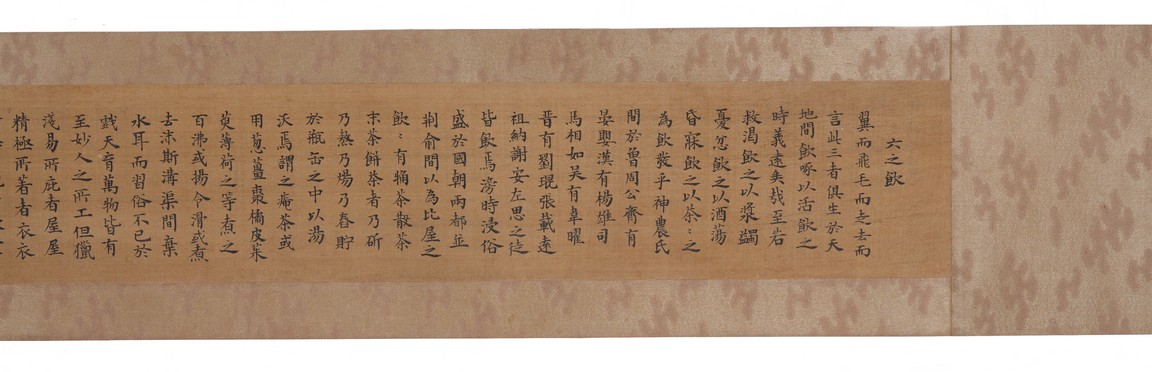 六之飲
翼而飛毛而走去而
言此三者俱生於天
地間飲啄以活飲之
時義遠矣哉至若
救渴飲之以漿蠲
憂忿飲之以酒蕩
昏寐飲之以茶〻之
為飲發乎神農氏
間於魯周公齊有
晏嬰漢有楊雄司
馬相如吳有韋曜
晉有劉琨張載遠
祖納謝安左思之徒
皆飲焉滂時浸俗
盛於國朝兩都並
荊俞間以為比屋之
飲〻有桶茶散茶
末茶餅茶者乃斫
乃熬乃煬乃舂貯
於瓶缶之中以湯
沃焉謂之庵茶或
用蔥薑棗橘皮茱
萸薄荷之等煮之
百沸或揚令滑或煮
去沫斯溝渠間棄
水耳而習俗不已於
戲天育萬物皆有
至妙人之所工但獵
淺易所庇者屋屋
精極所著者衣衣